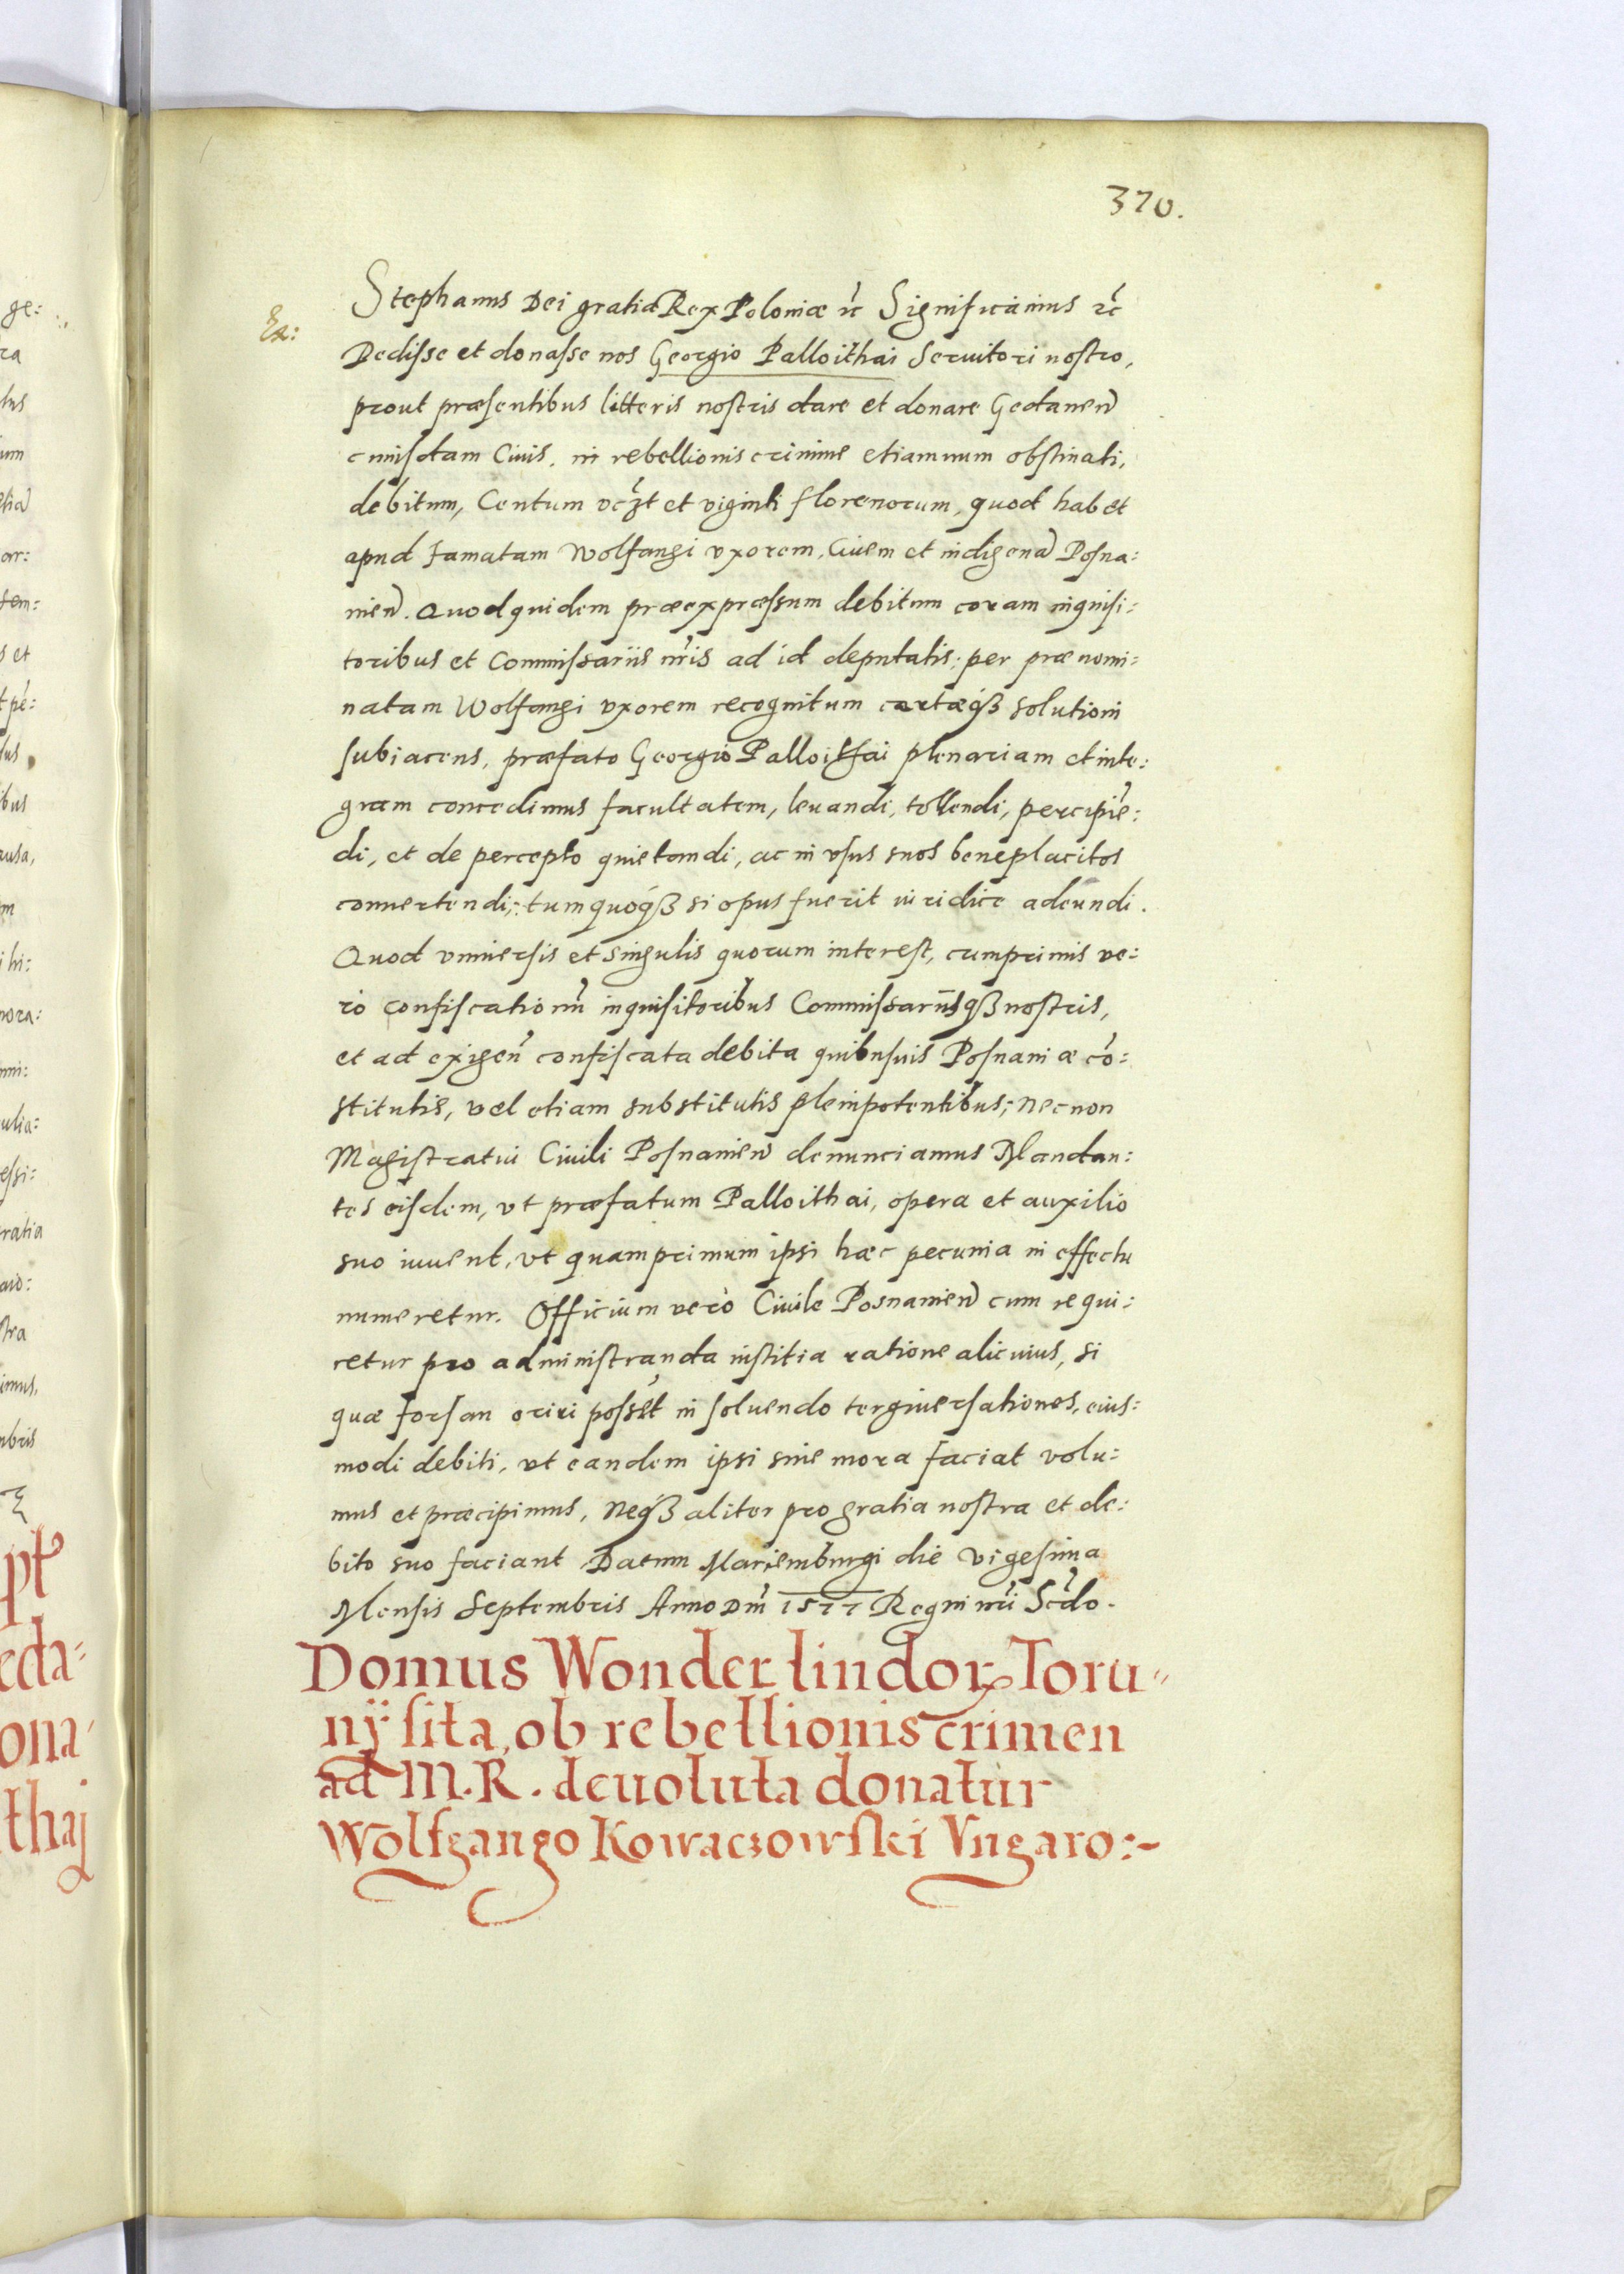 370.
Ex:
Stephanus Dei gratia Rex Poloniæ rc̃ Significamus rc̃
Dedisse et donasse nos Georgio Palloithai Seruitori nostro,
prout præsentibus litteris nostris dare et donare Gedanen̄
cuiusdam Ciuis, in rebellionis crimine etiamnum obstinati,
debitum, Centum vc̃zt et viginti florenorum, quod habet
apud famatam Wolfangi vxorem, Ciuem et indigenā Posna:
nien̄. Quod quidem præexpræssum debitum coram inquisi:
toribus et Commissariis nr̃is ad id deputatis: per prænomi:
natam Wolfangi vxorem recognitum certæqꝫ solutioni
subiacens, præfato Georgio Palloithai plenariam et inte:
gram concedimus facultatem, leuandi, tollendi, percipiē:
di, et de percepto quietandi, ac in vsus suos beneplacitos
conuertendi; tum quoqꝫ si opus fuerit iuridice adeundi.
Quod vniuersis et singulis quorum interest, cumprimis ve:
ro confiscationū inquisitoribus Commissariisqꝫ nostris,
et ad exigen̄ confiscata debita quibusuis Posnaniæ cō:
stitutis, vel etiam substitutis plenipotentibus; necnon
Magistratui Ciuili Posnanien̄ denunciamus Mandan:
tes eisdem, vt præfatum Palloithai, opera et auxilio
suo iuuent, vt quamprimum ipsi hæc pecunia in effectu
numeretur. Officium verò Ciuile Posnanien̄ cum requi:
retur pro administranda iustitia ratione alicuius, si
quæ forsan oriri possēt in soluendo tergiuersationes, eius:
modi debiti, vt eandem ipsi sine mora faciat volu:
mus et præcipimus, neqꝫ aliter pro gratia nostra et de:
bito suo faciant Datum Mariemburgi die vigesima
Mensis Septembris Anno Dn̄i 1577 Regni nr̃i Scd̃o.
Domus Wonderlindorꝝ Toru"
nÿ sita, ob rebellionis crimen
ad M.R. deuoluta donatur
Wolfgango Kowaczowski Vngaro:-